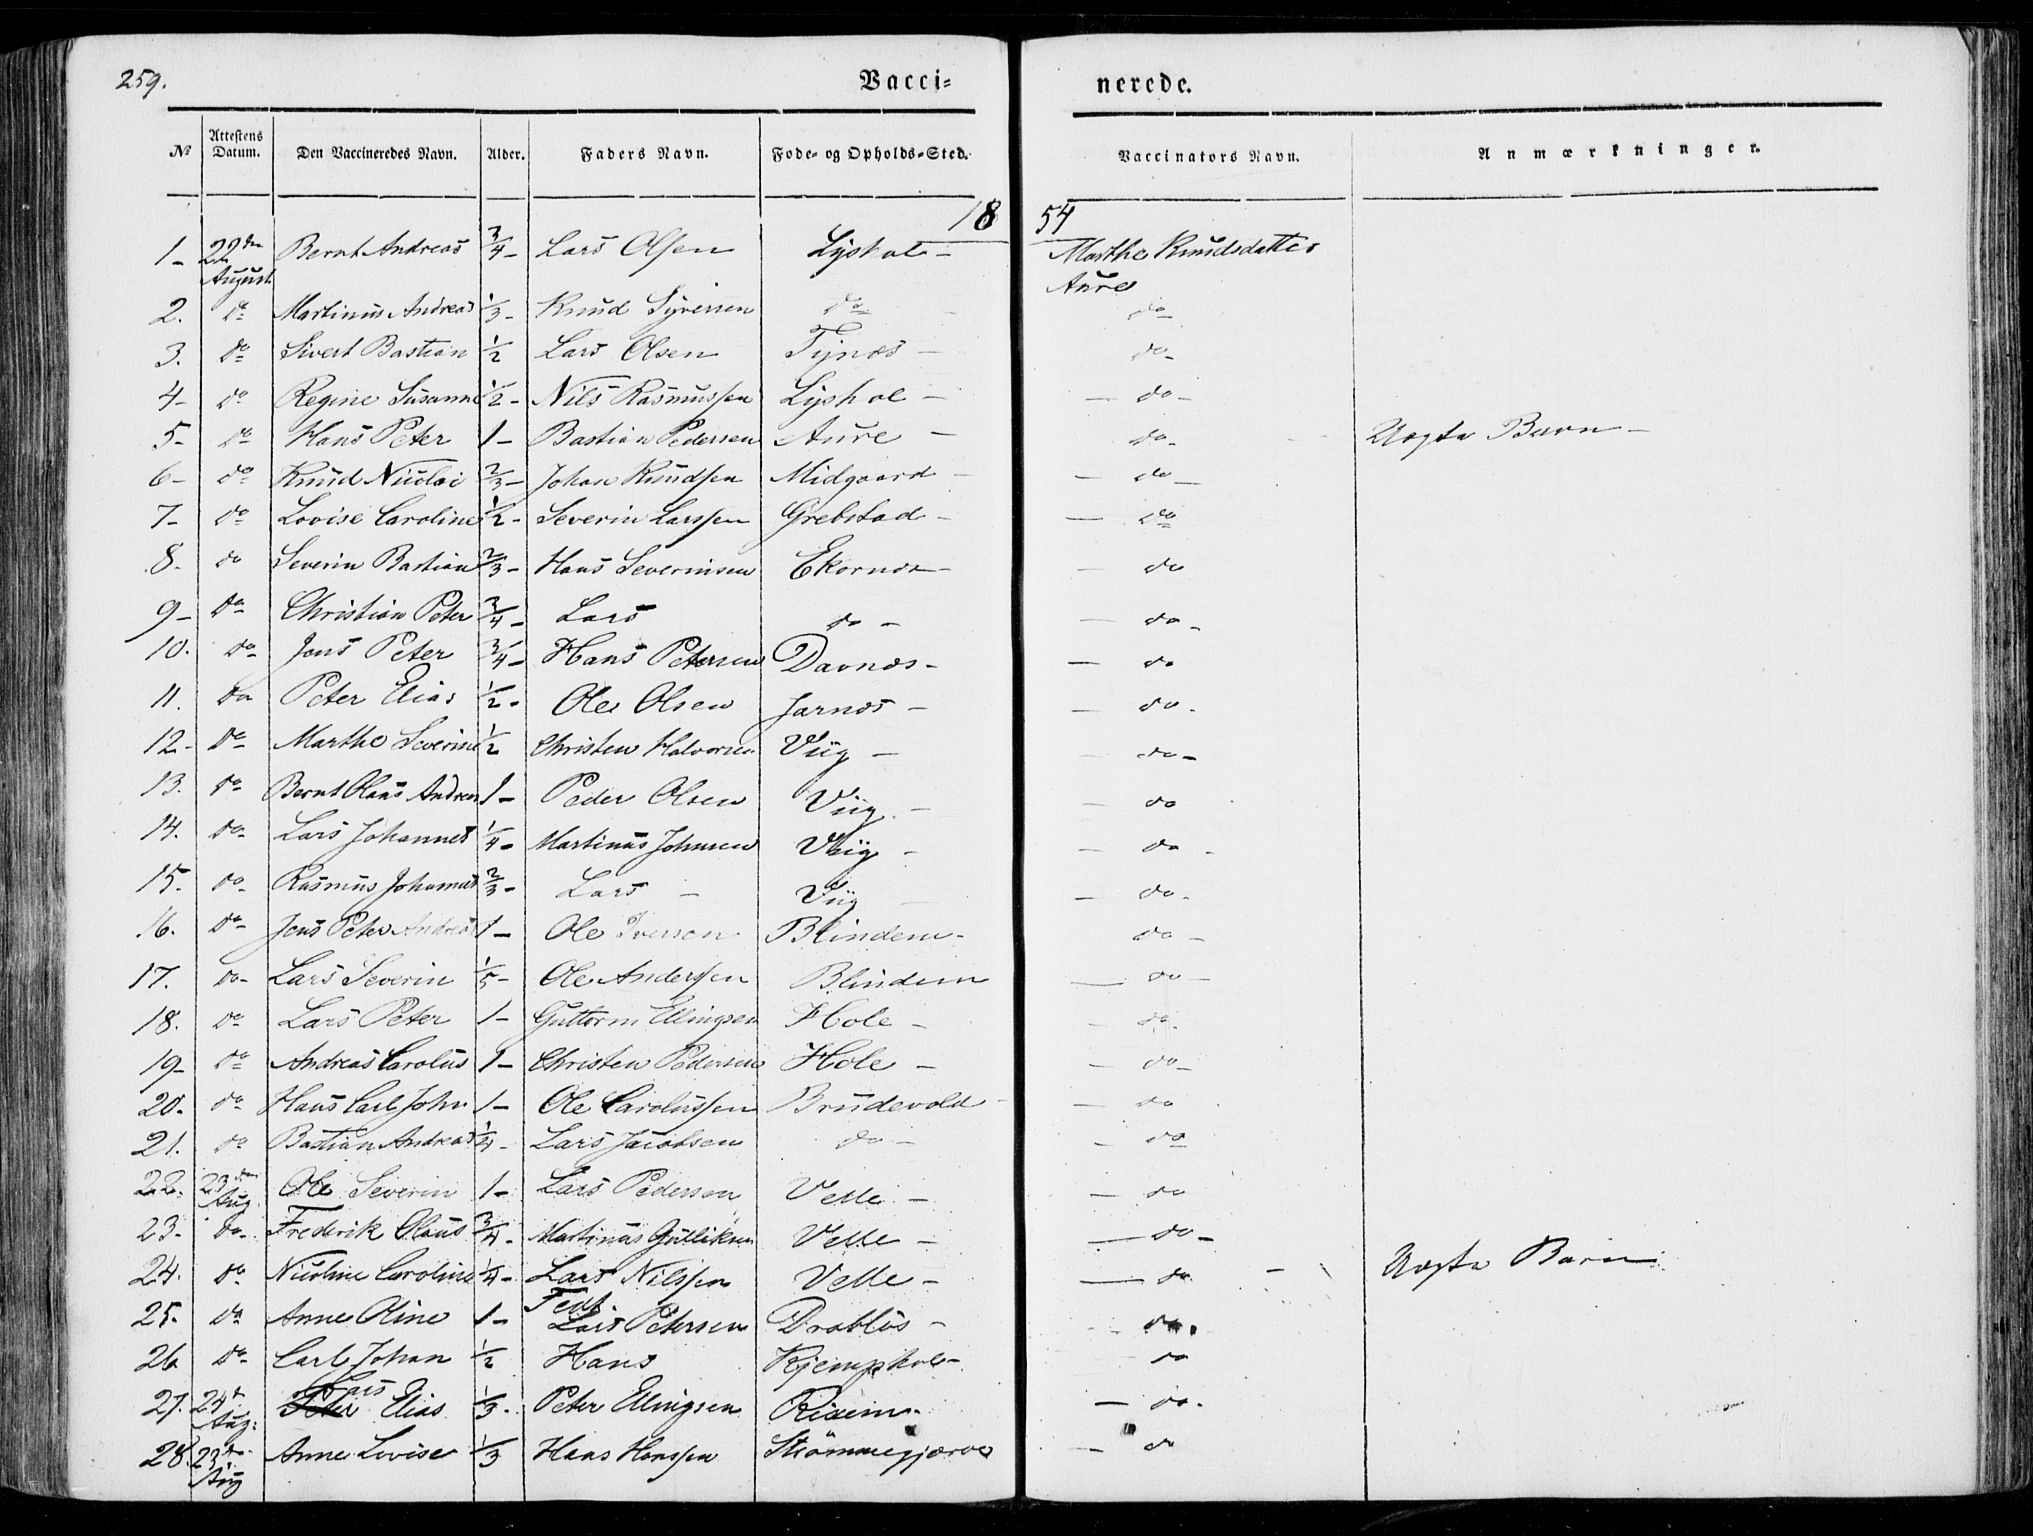 259.
Vacci= nerede.
No Attestens Datum. Den Vaccineredes Navn. Alder. Faders Navn. Fode= og Opholds=Sted. Vaccinators Navn. Anmærkninger.
18 54
1- 22den August Bernt Andreas 3/4- Lars Olsen Lyshol- Marthe Knudsdatter Aure
2. do Martinus Andreas 1/3- Knud Syversen do do
3. do Sivert Bastian 1/2 Lars Olsen Tynæs - do-
4- do Regine Susanne 1/2- Nils Rasmussen Lyshol - - do-
5- do Hans Peter 1- Bastian Pedersen Aure - do- Uægte Barn-
6- do Knud Nicolai 2/3- Johan Knudsen Midgaard - - do-
7- do Lovise Caroline 1/2- Severin Larssen Grebstad - - do
8. do Severin Bastian 2/3- Hans Severinsen Ekornæs- - do
9- do Christian Peter 3/4- Lars do - - do-
10. do Jens Peter 3/4- Hans Petersen Davnæs- - do
11. do Peter Elias 1/2- Ole Olsen Jarnæs - - do-
12- do Marthe Severine 1/2 Christen Halvorsen Viig - - do-
13. do Bernt Olaus Andreas 1- Peder Olsen Viig - - do
14. do Lars Johannes 1/4- Martinus Johnsen Viig - - do -
15. do Rasmus Johannes 2/3- Lars - Viig - - do-
16. do Jens Peter Andreas 1- Ole Iversen Blindem- do -
17. do- Lars Severin 1/5- Ole Anderssen Blindem - do -
18. do Lars Peter 1- Guttorm Ellingsen Hole - - do-
19- do Andreas Carolus 1- Christen Pedersen Hole - - do-
20. do Hans Carl John 1- Ole Carolussen Brudevold - - do
21. do Bastian Andreas 1/4- Lars Jacobsen do - - do
22. 23den Aug Ole Severin 1- Lars Pedersen Velle - - do
23. do- Frederik Olaus 3/4- Martinus Gulliksen Velle - - do-
24. do Nicoline Caroline 1/4- Lars Nilssen Velle- - do - Uægte Barn
25. do Anne Oline 1- Lars Petersen Drabløs - - do.
26 do Carl Johan 1/2 Hans Kjemphol- do
27. 24d Aug: Lars Elias 1/3- Peter Ellingsen Risem- - do-
28. 23de Aug Anne Lovise 1/3 Hans Hanssen Strømmegjærde - do